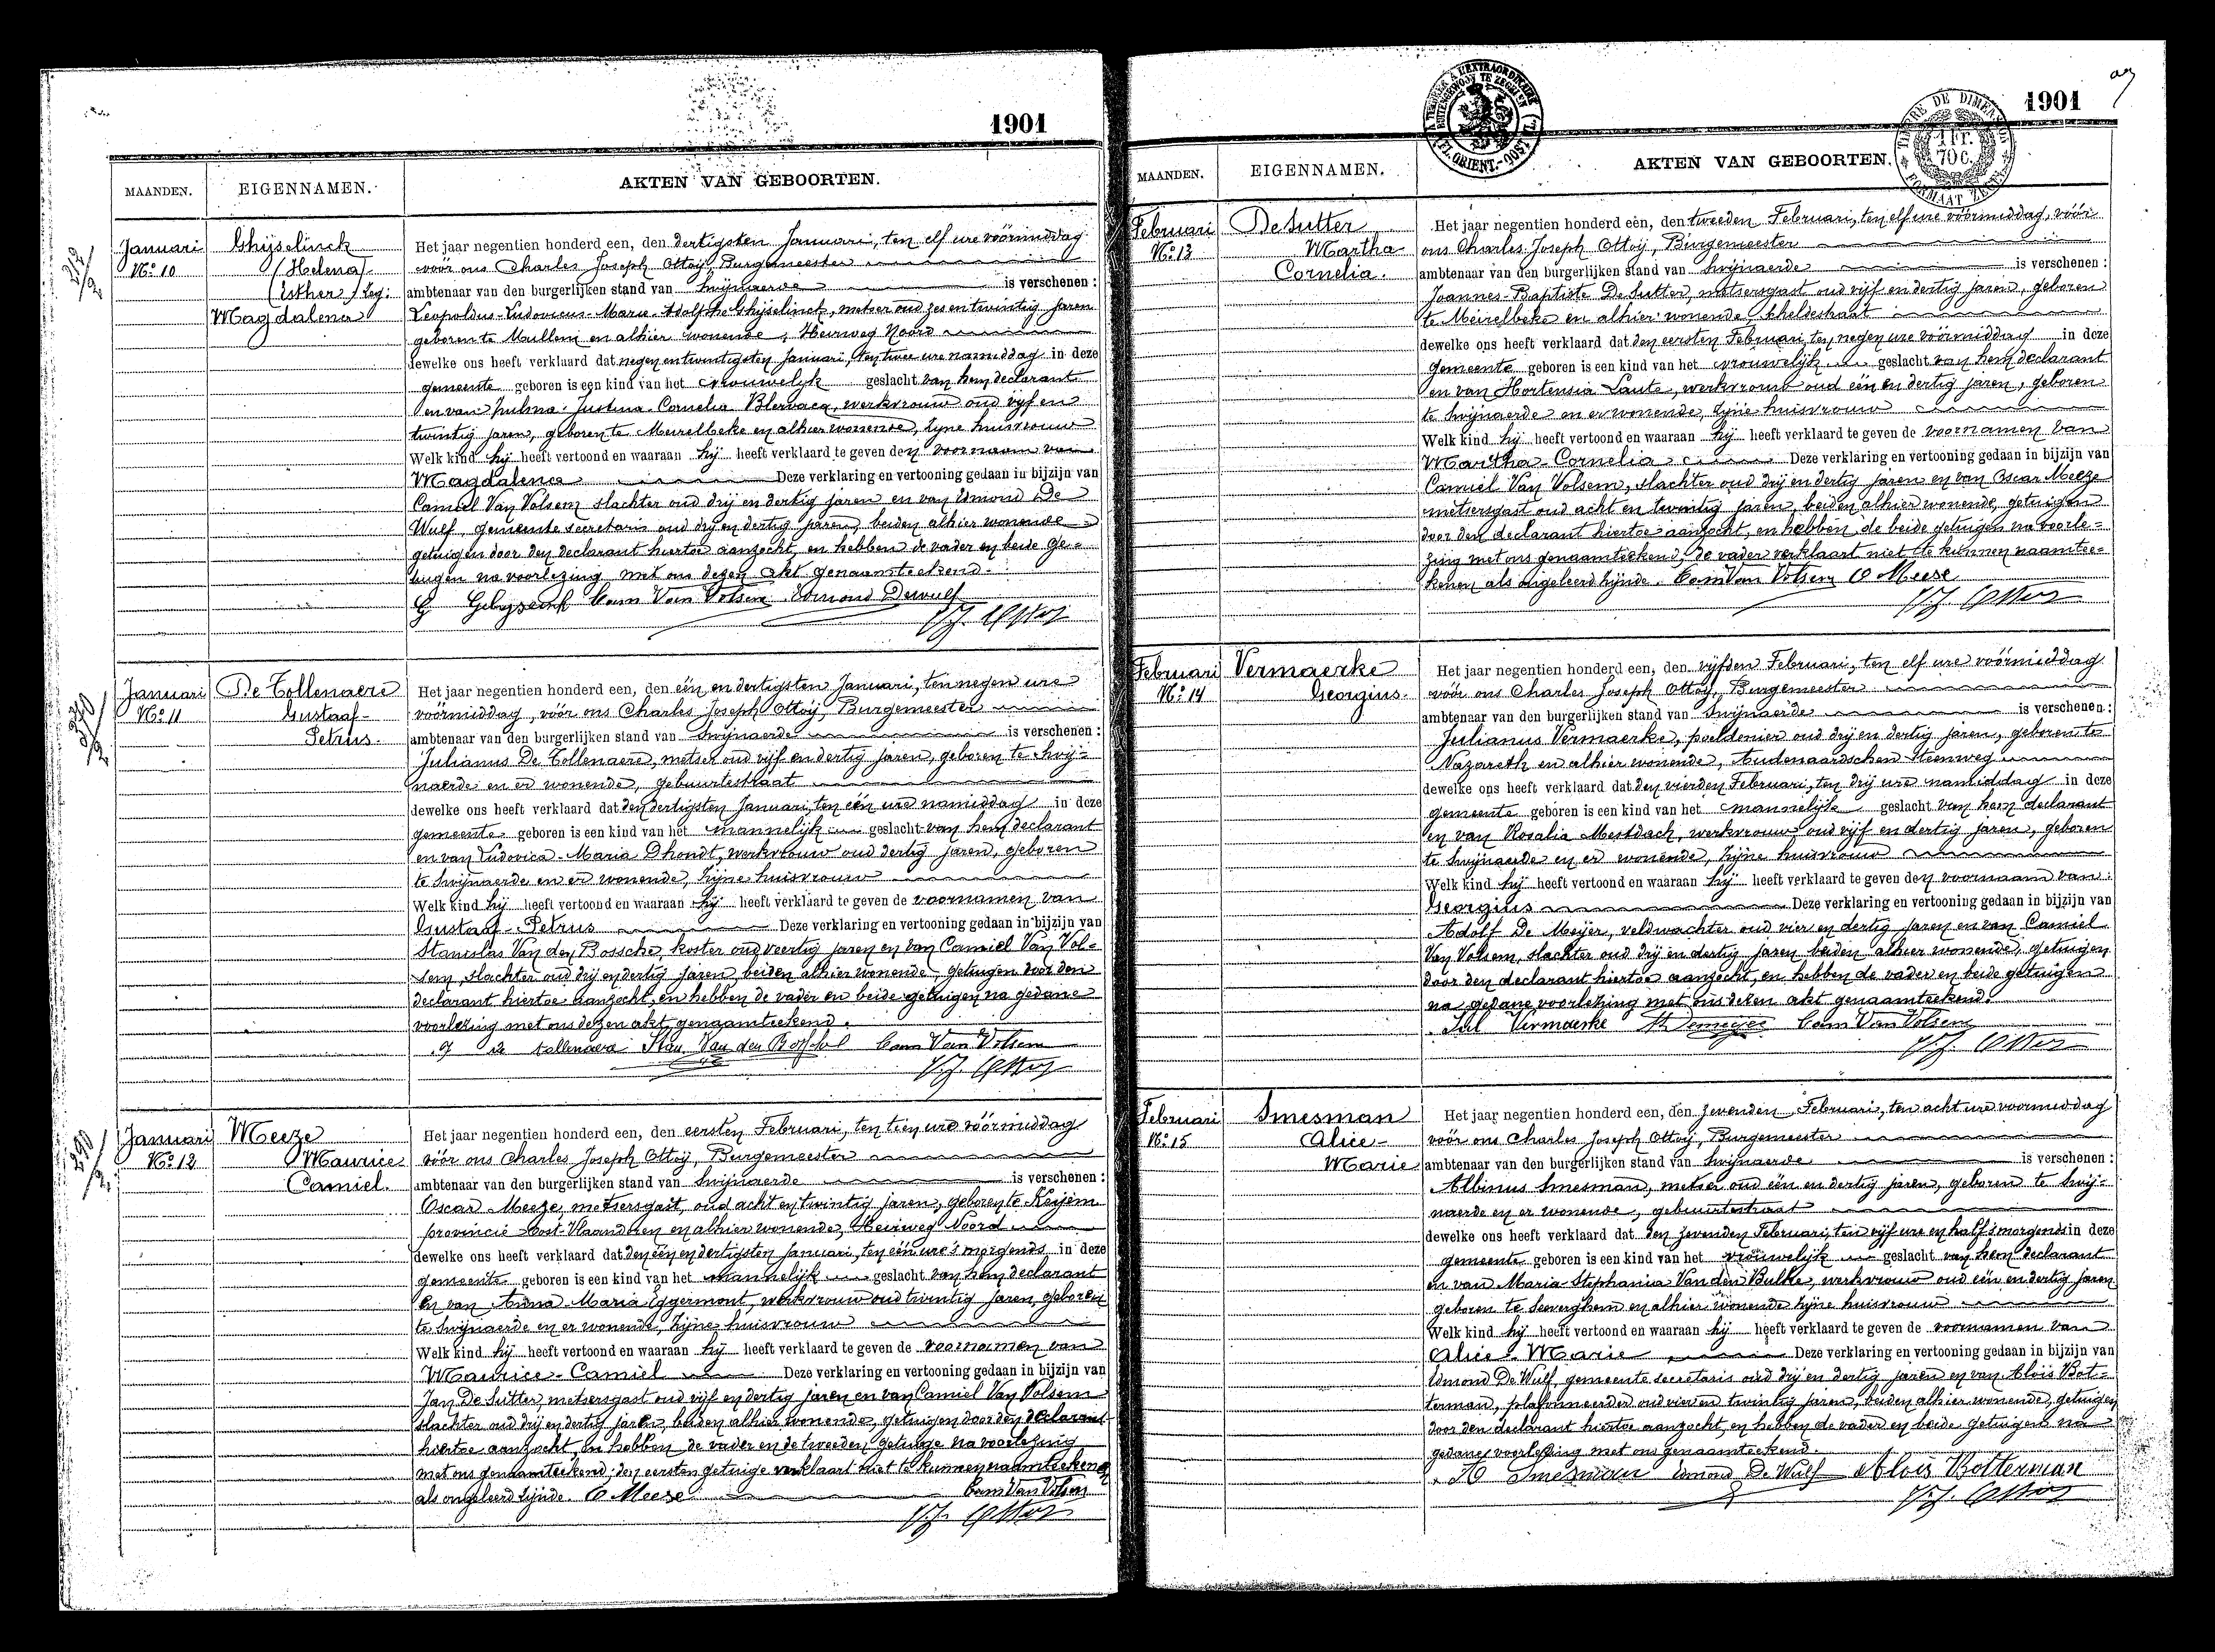 1901
MAANDEN.
EIGENNAMEN.
AKTEN VAN GEBOORTEN.
Januari
No 10
Ghijselinck
(Helena)
(Esther)
Magdalena
Het jaar negentien honderd een, den dertigsten Januarri, ten elf ure vóórmiddag
vóór ons Charles Joseph Ottoÿ, Burgemeester
ambtenaar van den burgerlijken stand van Swijnaerde is verschenen :
Leopoldus-Ludovicus-Marie-Adolphe Ghijselinck, metser oud zes en twintig jaren
geboren te Mullem en alhier wonende, Heirweg Noord
dewelke ons heeft verklaard dat negen en twintigsten Januari, ten twee ure namiddag in deze
gemeente geboren is een kind van het vrouwelijk geslacht van hem declarant
en van Justina-Cornelia Blervacq, werkvrouw oud vyf en
twintig jaren, geboren te Meirelbeke en alhier wonende, zyne huisvrouw
Welk kind hij heeft vertoond en waaraan hij heeft verklaard te geven den voornaam van
Magdalena Deze verklaring en vertooning gedaan in bijzijn van
Camiel Van Volsem slachter oud drij en dertig jaren en van Edmond De
Wulf, gemeente secretaris oud drij en dertig jaren, beiden alhier wonende
getuigen door den declarant hiertoe aanzocht, en hebben de vader en beide ge-
tuigen na voorlezing met ons dezen akt genaamteekend.
Cam Van Volsem Edmond Dewulf
Januari
No 11
De Tollenaere
Gustaaf-
Petrus-
Het jaar negentien honderd een, den één en dertigsten Januari, ten negen ure
vóórmiddag, vóór ons Charles Joseph Ottoÿ, Burgemeester
ambtenaar van den burgerlijken stand van Swijnaerde is verschenen :
Julianus De Tollenaere, metser oud vijf en dertig jaren, geboren te Swij-
naerde en er wonende, gebuurtestraat
dewelke ons heeft verklaard dat den dertigsten Januari, ten één ure namiddag in deze
gemeente geboren is een kind van het mannelijk geslacht van hem declarant
en van Ludovica-Maria Dhondt, werkvrouw oud dertig jaren, geboren
te Swijnaerde en er wonende, zijne huisvrouw
Welk kind hij heeft vertoond en waaraan hij heeft verklaard te geven de voornamen van
Gustaaf-Petrus Deze verklaring en vertooning gedaan in bijzijn van
Stanislas Van den Bossche, koster oud veertig jaren en van Camiel Van Vol-
sem, slachter oud drij en dertig jaren, beiden alhier wonende, getuigen door den
declarant hiertoe aanzocht, en hebben de vader en beide getuigen na gedane
voorlezing met ons dezen akt genaamteekend.
tollenaera Stan. Van den Bossche Cam Van Volsem
Januari
No 12
Meeze
Maurice
Camiel.
Het jaar negentien honderd een, den eersten Februari, ten tien ure vóórmiddag
vóór ons Charles Joseph Ottoÿ, Burgemeester
ambtenaar van den burgerlijken stand van Swijnaerde is verschenen :
Oscar Meeze, metsersgast, oud acht en twintig jaren, geboren te Keijem
provincie Vlaanderen en alhier wonende, Heirweg Noord
dewelke ons heeft verklaard dat den één en dertigsten Januari, ten één ure 's morgends in deze
gemeente geboren is een kind van het mannelijk geslacht van hem declarant
en van Anna Maria Eggermont, werkvrouw oud twintig jaren, geboren
te Swijnaerde en er wonende, zijne huisvrouw
Welk kind hij heeft vertoond en waaraan hij heeft verklaard te geven de voornamen van
Maurice-Camiel Deze verklaring en vertooning gedaan in bijzijn van
Jan De Sutter, metsersgast oud vijf en dertig jaren en van Camiel Van Volsem
slachter oud drij en dertig jaren, beiden alhier wonende, getuigen door den declarant
hiertoe aanzocht, en hebben de vader en de tweeden getuige na voorlezing
met ons genaamteekend; den eersten getuige verklaart niet te kunnen naamteekenen
als ongeleerd zijnde. O Meese Cam Van Volsem
1901
TIMBRE DE DIMENSION
1 Fr.
70 C.
FORMAAT ZEGEL
MAANDEN.
EIGENNAMEN.
AKTEN VAN GEBOORTEN.
Februari
No 13
De Sutter
Martha
Cornelia.
Het jaar negentien honderd eén, den tweeden Februari, ten elf ure vóórmiddag, vóór
ons Charles Joseph Ottoÿ, Burgemeester
ambtenaar van den burgerlijken stand van Swijnaerde is verschenen :
Joannes-Baptiste De Sutter, metsersgast oud vijf en dertig jaren, geboren
te Meirelbeke en alhier wonende, Scheldestraat
dewelke ons heeft verklaard dat den eersten Februari, ten negen ure vóórmiddag in deze
gemeente geboren is een kind van het vrouwelijk geslacht van hem declarant
en van Hortensia Laute, werkvrouw oud één en dertig jaren, geboren
te Swijnaerde en er wonende, zijne huisvrouw
Welk kind hij heeft vertoond en waaraan hij heeft verklaard te geven de voornamen van
Martha-Cornelia Deze verklaring en vertooning gedaan in bijzijn van
Camiel Van Volsem, slachter oud drij en dertig jaren en van Oscar Meeze
metsersgast oud acht en twintig jaren, beiden alhier wonende, getuigen
door den declarant hiertoe aanzocht, en hebben de beide getuigen na voorle-
zing met ons genaamteekend, de vader verklaart niet te kunnen naamtee-
kenen als ongeleerd zijnde. Cam Van Volsem O Meese
Februari
No 14
Vermaerke
Georgius-
Het jaar negentien honderd een, den vijfden Februari, ten elf ure vóórmiddag
vóór ons Charles Joseph Ottoÿ, Burgemeester
ambtenaar van den burgerlijken stand van Swijnaerde is verschenen :
Julianus Vermaerke, poeldenier oud drij en dertig jaren, geboren te
Nazareth en alhier wonende, Audenaardschen Steenweg
dewelke ons heeft verklaard dat den vierden Februari, ten drij ure namiddag in deze
gemeente geboren is een kind van het mannelijk geslacht van hem declarant
en van Rosalia Mestdach, werkvrouw oud vijf en dertig jaren, geboren
te Swijnaerde en er wonende, zijne huisvrouw
Welk kind hij heeft vertoond en waaraan hij heeft verklaard te geven den voornaam van
Georgius Deze verklaring en vertooning gedaan in bijzijn van
Adolf De Meijer, veldwachter oud vier en dertig jaren en van Camiel
Van Volsem, slachter oud drij en dertig jaren beiden alhier wonende, getuigen
door den declarant hiertoe aanzocht, en hebben de vader en beide getuigen
na gedane voorlezing met ons dezen akt genaamteekend.
Jul Vermaerke Demeyer Cam Van Volsem
Februari
No 15
Smesman
Alice-
Marie
Het jaar negentien honderd een, den zevenden Februari, ten acht ure voormiddag
vóór ons Charles Joseph Ottoÿ, Burgemeester
ambtenaar van den burgerlijken stand van Swijnaerde is verschenen :
Albinus Smesman, metser oud één en dertig jaren, geboren te Swij-
naerde en er wonende, gebuurtestraat
dewelke ons heeft verklaard dat den zevenden Februari, ten vijf ure en half 's morgends in deze
gemeente geboren is een kind van het vrouwelijk geslacht van hem declarant
en van Maria-Stephania Van den Bulke, werkvrouw oud één en dertig jaren
geboren te Severghem en alhier wonende zijne huisvrouw
Welk kind hij heeft vertoond en waaraan hij heeft verklaard te geven de voornamen van
Alice-Marie Deze verklaring en vertooning gedaan in bijzijn van
Edmond De Wulf, gemeente secretaris oud drij en dertig jaren en van Aloïs Bot-
terman, plafonneerder oud vier en twintig jaren, beiden alhier wonende, getuigen
door den declarant hiertoe aanzocht, en hebben de vader en beide getuigen na
gedane voorlezing met ons genaamteekend.
A Smesman Edmond De Wulf Aloïs Botterman